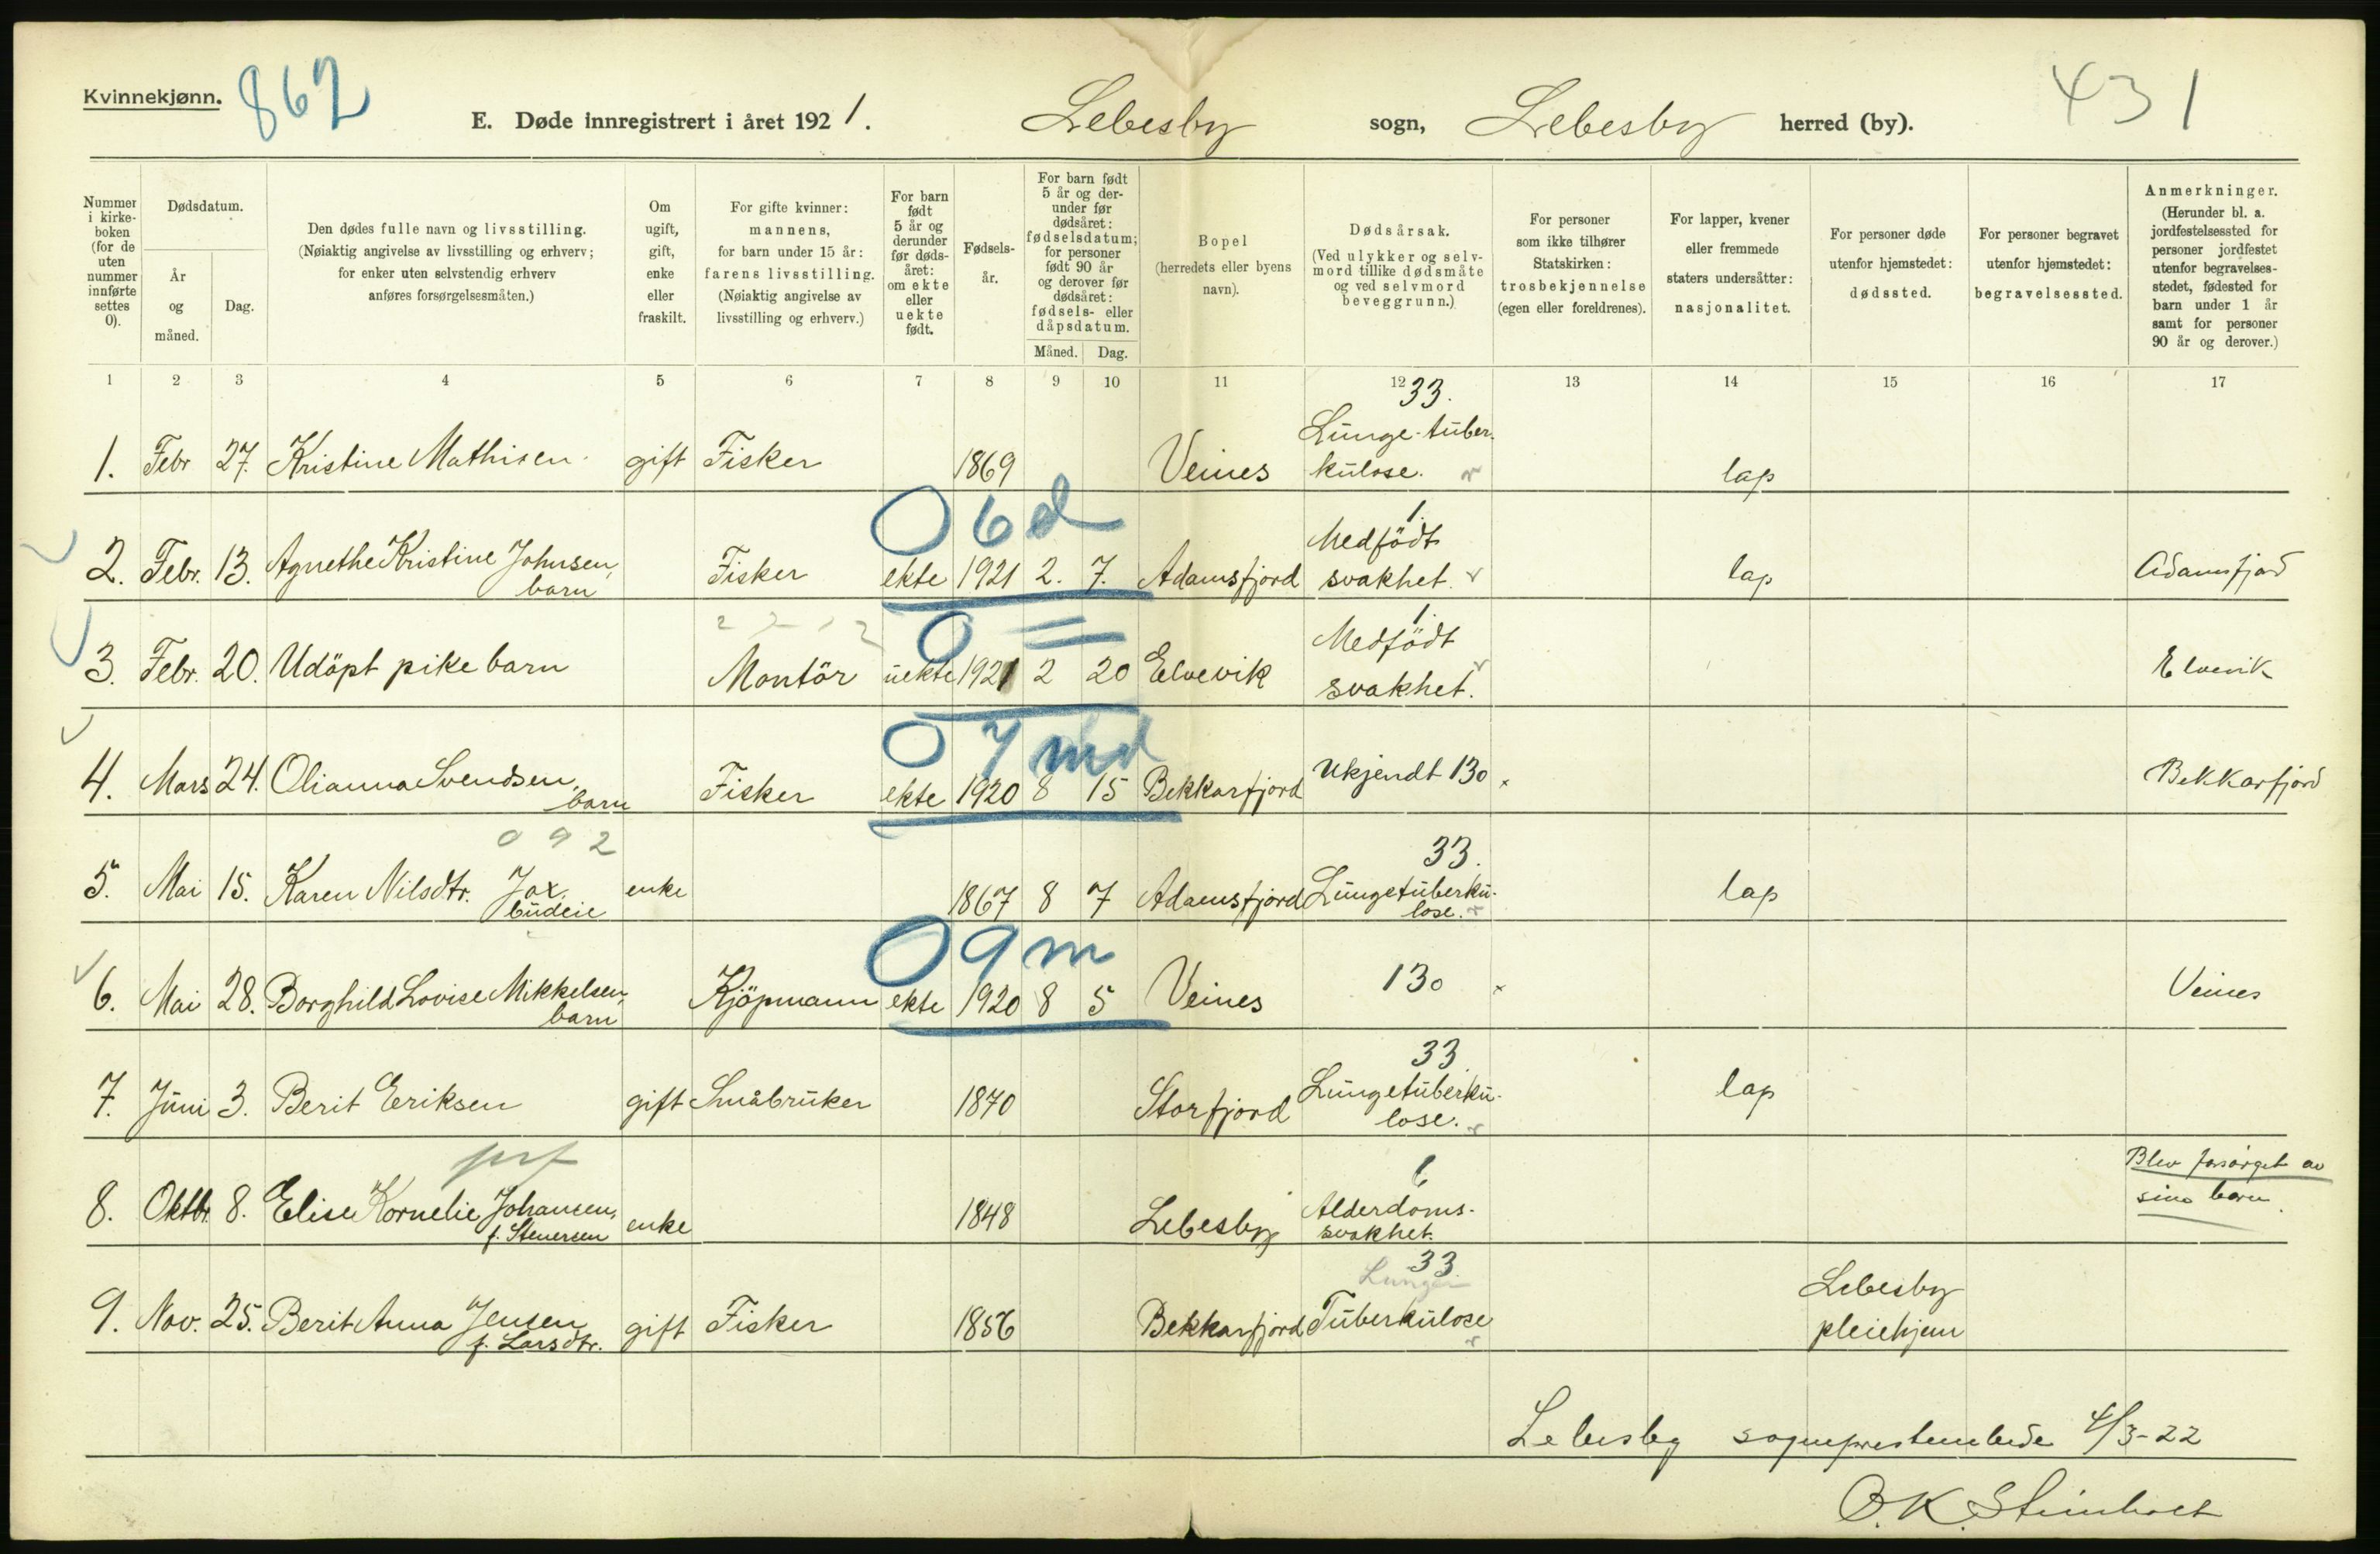 Kvinnekjønn.
862
E. Døde innregistrert i året 1921. Lebesby sogn, Lebesby herred (by).
431
Nummer i kirke-boken (for de uten nummer innførte settes 0).
Dødsdatum.
År og måned.
Dag.
Den dødes fulle navn og livsstilling.
(Nøiaktig angivelse av livsstilling og erhverv;
for enker uten selvstendig erhverv
anføres forsørgelsesmåten.)
Om ugift, gift, enke eller fraskilt.
For gifte kvinner:
mannens,
for barn under 15 år:
farens livsstilling.
(Nøiaktig angivelse av
livsstilling og erhverv.)
For barn født 5 år og derunder før døds-året: om ekte eller uekte født.
Fødsels-år.
For barn født 5 år og der-under før dødsåret: fødselsdatum; for personer født 90 år og derover før dødsåret: fødsels- eller dåpsdatum.
Måned. Dag.
Bopel
(herredets eller byens
navn).
Dødsårsak.
(Ved ulykker og selv-
mord tillike dødsmåte
og ved selvmord
beveggrunn.)
For personer
som ikke tilhører
Statskirken:
trosbekjennelse
(egen eller foreldrenes).
For lapper, kvener
eller fremmede
staters undersåtter:
nasjonalitet.
For personer døde
utenfor hjemstedet:
dødssted.
For personer begravet
utenfor hjemstedet:
begravelsessted.
Anmerkninger.
(Herunder bl. a.
jordfestelsessted for
personer jordfestet
utenfor begravelses-
stedet, fødested for
barn under 1 år
samt for personer
90 år og derover.)
1 2 3 4 5 6 7 8 9 10 11 12 13 14 15 16 17
33.
Lunge-tuber-
1. Febr 27. Kristine Mathisen gift Fisker 1869 Veines kulose. lap
0 6 d
1.
Medfödt
2. Febr. 13. Agnethe Kristine Johnsen, Fisker ekte 1921 2. 7. Adamsfjord svakhet. lap Adamsfjord
barn
0 =
1.
Medfödt
3. Febr. 20. Udöpt pike barn Montör uekte 1921 2 20 Elvevik svakhet. Elvevik
0 7 md
4. Mars 24. Olianna Svendsen, Fisker ekte 1920 8 15 Bekkarfjord Ukjendt 130 Bekkarfjord
barn
0 9 2
33.
5. Mai 15. Karen Nilsdtr. Jax, enke 1867 8 7 Adamsfjord Lungetuberku- lap
budeie lose.
0 9 m
6. Mai 28. Borghild Lovise Mikkelsen, Kjöpmann ekte 1920 8 5 Veines 130 Veines
barn
33
7. Juni 3. Berit Eriksen gift Småbruker 1870 Storfjord Lungetuberku- lap
lose.
Blev forsörget av
sine barn.
6
8. Oktbr. 8. Elise Kornelie Johansen, enke 1848 Lebesby Alderdoms-
f. Stenersen svakhet.
33
Lunge
Lebesby
9. Nov. 25. Berit Anna Jensen gift Fisker 1856 Bekkarfjord Tuberkulose pleiehjem
f. Larsdtr.
Lebesby sogneprestembede 4/3-22
O.K. Steinholt